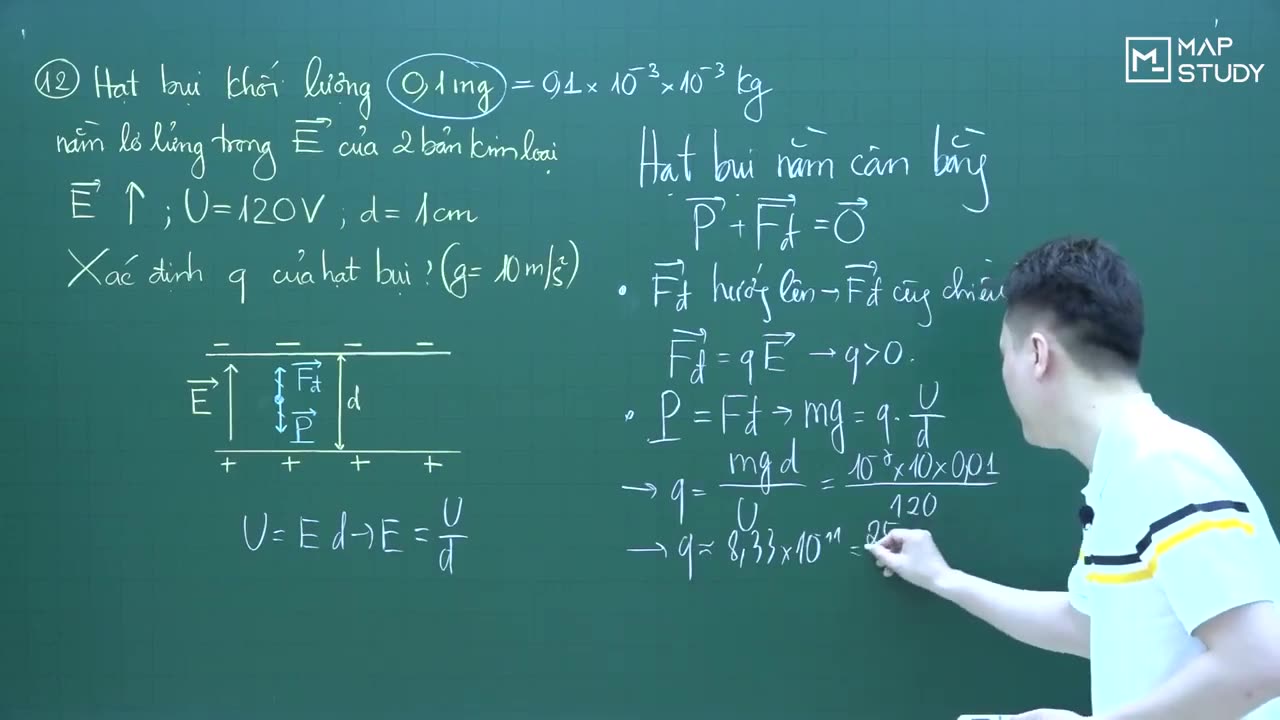 MAP
STUDY
12 Hạt bụi khối lượng 0,1mg = 0,1 × 10⁻³ × 10⁻³ kg
nằm lơ lửng trong E⃗ của 2 bản kim loại
E⃗ ↑ ; U = 120V ; d = 1cm
Xác định q của hạt bụi ? (g = 10 m/s²)
− − − −
E⃗ F⃗đ d
P⃗
+ + + +
U = E d → E = U/d
Hạt bụi nằm cân bằng
P⃗ + F⃗đ = 0⃗
• F⃗đ hướng lên → F⃗đ cùng chiều
F⃗đ = q E⃗ → q > 0.
• P = Fđ → mg = q . U/d
→ q = mgd/U = 10⁻⁷ × 10 × 0,01/120
→ q ≈ 8,33 × 10⁻¹¹ = 25